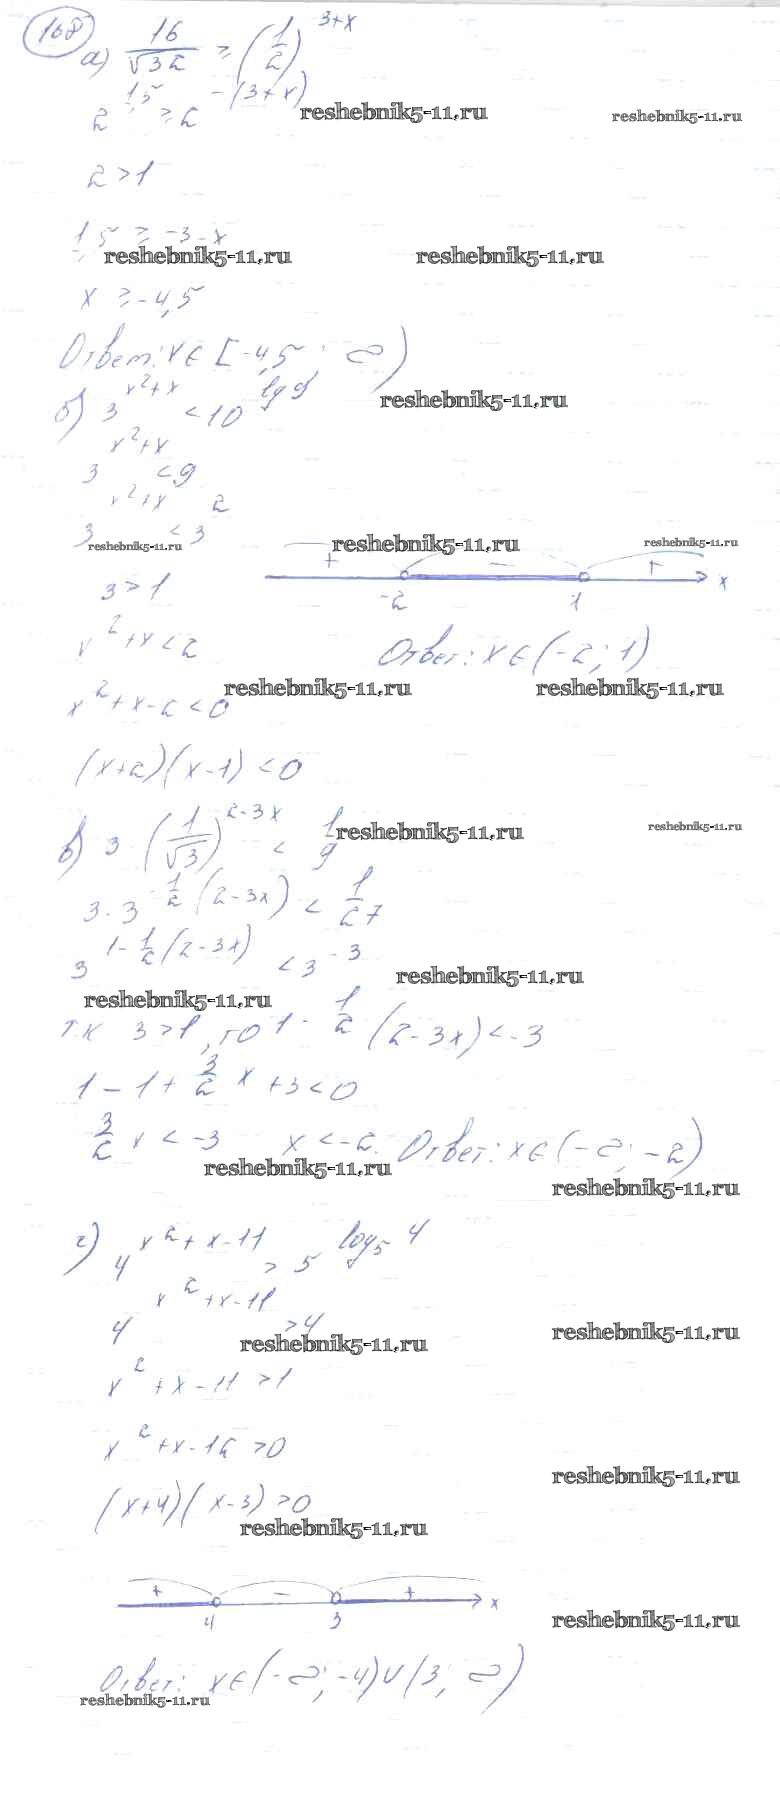 168
а) 16/√32 ≥ (1/2)^(3+x)
2^(1,5) ≥ 2^(-(3+x))
reshebnik5-11.ru reshebnik5-11.ru
2 > 1
1,5 ≥ -3-x
reshebnik5-11.ru reshebnik5-11.ru
x ≥ -4,5
Ответ: x ∈ [-4,5; ∞)
б) 3^(x²+x) < 10^(lg 9)
reshebnik5-11.ru
3^(x²+x) < 9
3^(x²+x) < 3²
reshebnik5-11.ru reshebnik5-11.ru reshebnik5-11.ru
+ - + x
-2 1
3 > 1
x²+x < 2
Ответ: x ∈ (-2; 1)
x²+x-2 < 0
reshebnik5-11.ru reshebnik5-11.ru
(x+2)(x-1) < 0
в) 3·(1/√3)^(2-3x) < 1/9
reshebnik5-11.ru reshebnik5-11.ru
3·3^(-1/2(2-3x)) < 1/27
3^(1-1/2(2-3x)) < 3^(-3)
reshebnik5-11.ru
reshebnik5-11.ru
т.к 3 > 1, то 1-1/2(2-3x) < -3
1-1+3/2x+3 < 0
3/2x < -3 x < -2. Ответ: x ∈ (-∞; -2)
reshebnik5-11.ru
reshebnik5-11.ru
г) 4^(x²+x-11) > 5^(log₅4)
4^(x²+x-11) > 4
reshebnik5-11.ru reshebnik5-11.ru
x²+x-11 > 1
x²+x-12 > 0
reshebnik5-11.ru
(x+4)(x-3) > 0
reshebnik5-11.ru
+ - + x
4 3
reshebnik5-11.ru
Ответ: x ∈ (-∞; -4) ∪ (3; ∞)
reshebnik5-11.ru